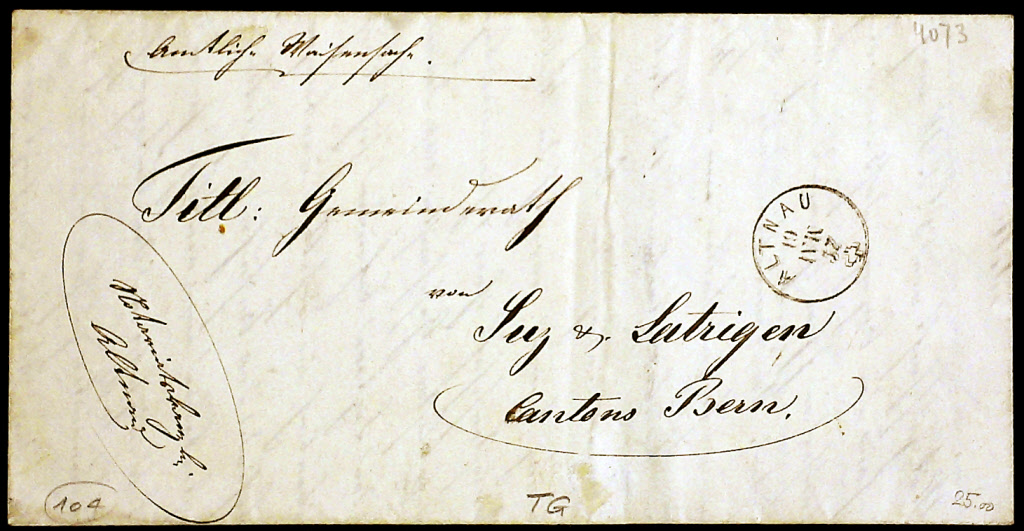 4073
Amtliche Waisensache.
Titl: Gemeinderath
ALTNAU
von
Suz & Latrigen
Cantons Bern.
Notariatskanzlei
Altnau
104
TG
25.00